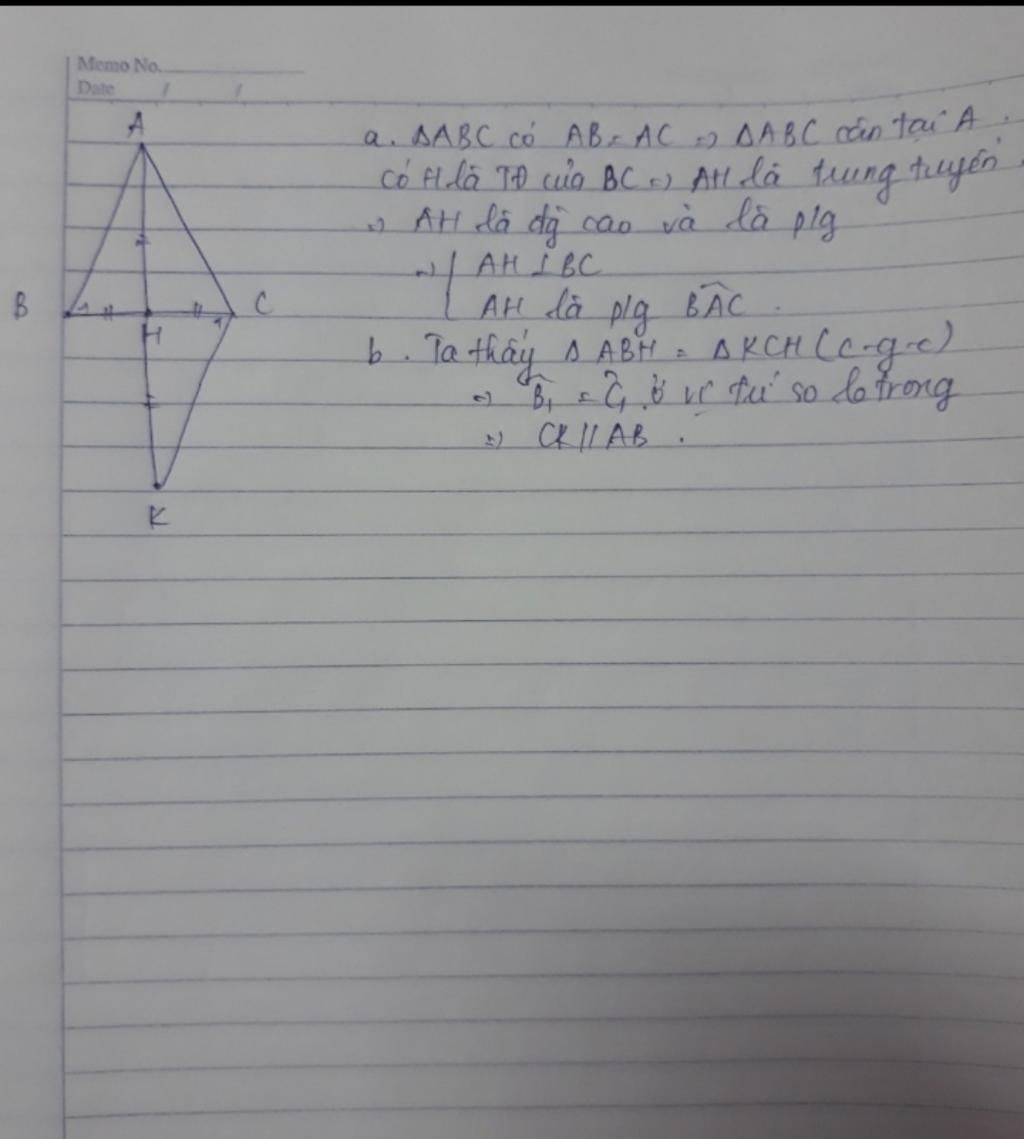 Memo No.
Date / /
A
a. ΔABC có AB = AC => ΔABC cân tại A.
có H là TĐ của BC => AH là trung tuyến.
=> AH là đg cao và là p/g
=> { AH ⊥ BC
AH là p/g B̂AC.
B
C
H
b. Ta thấy Δ ABH = ΔKCH (c-g-c)
=> B̂₁ = Ĉ₁ ở vị trí so le trong
=> CK // AB.
K